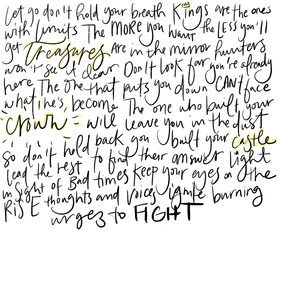 Let go don't hold your breath Kings are the ones
with limits The MORE you want the LESS you'll
get Treasures are in the mirror hunters
won't see it clear Don't look far you're already
here The one that puts you down CAN't face
what he's become The one who built your
crown will leave you in the dust
So don't hold back you built your castle
lead the rest to find their answer Light
in sight of Bad times Keep your eyes on the
RISE thoughts and voices ignite burning
urges to FIGHT